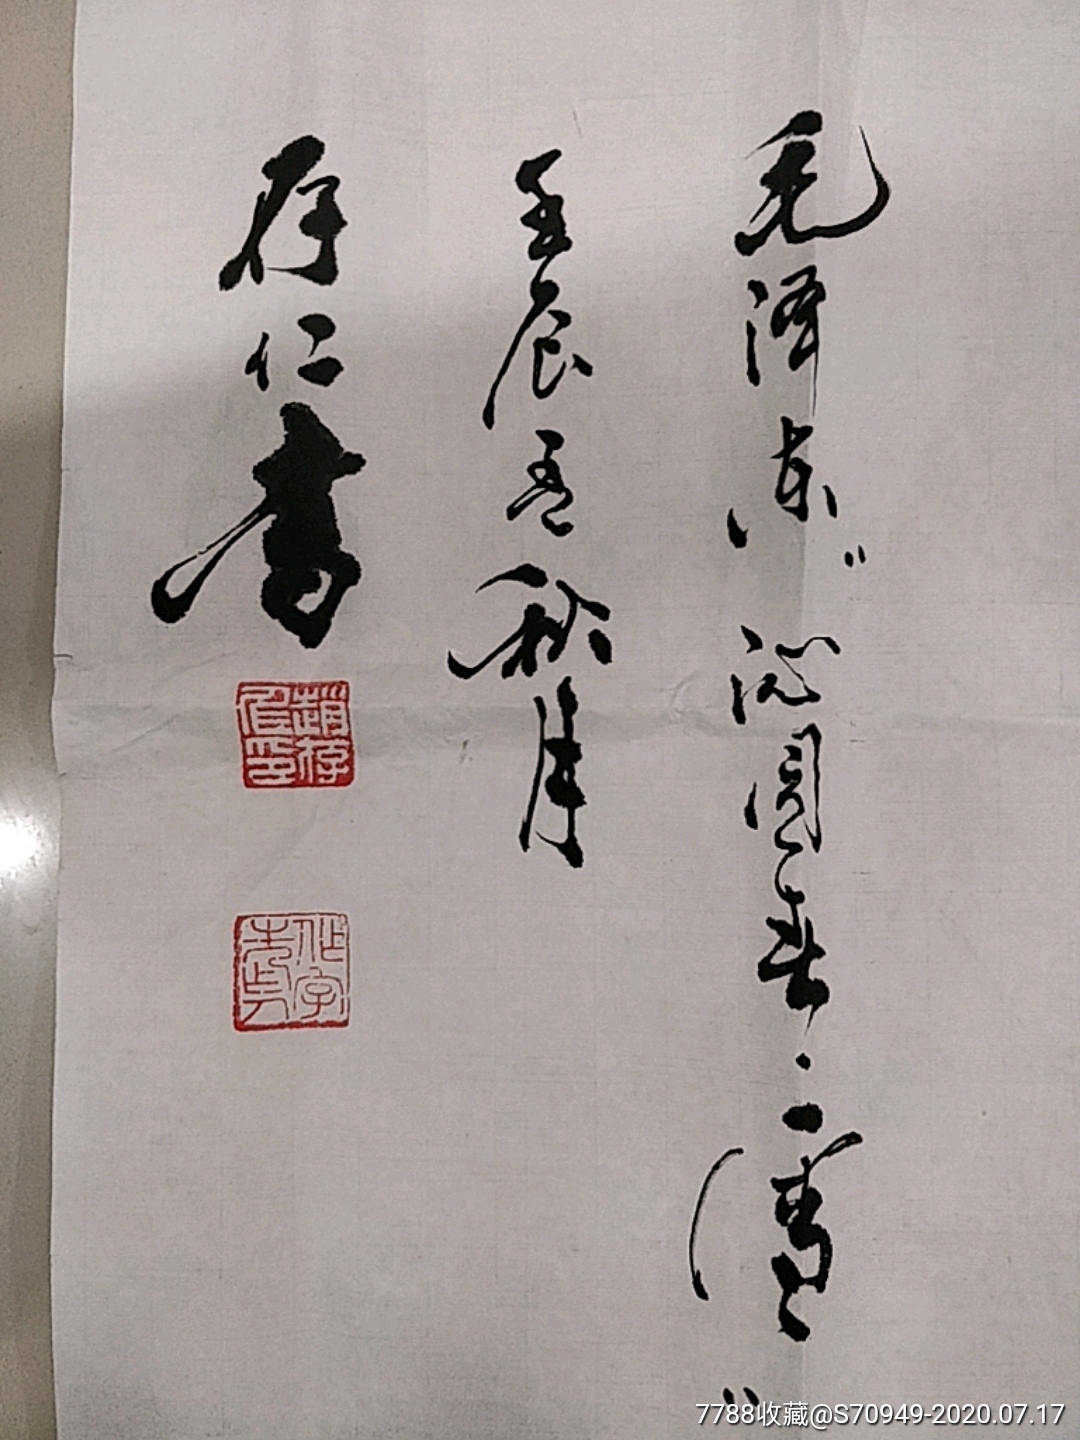 毛泽东"沁园春·雪"
壬辰孟秋月
存仁书
趙存仁印
7788收藏@S70949-2020.07.17